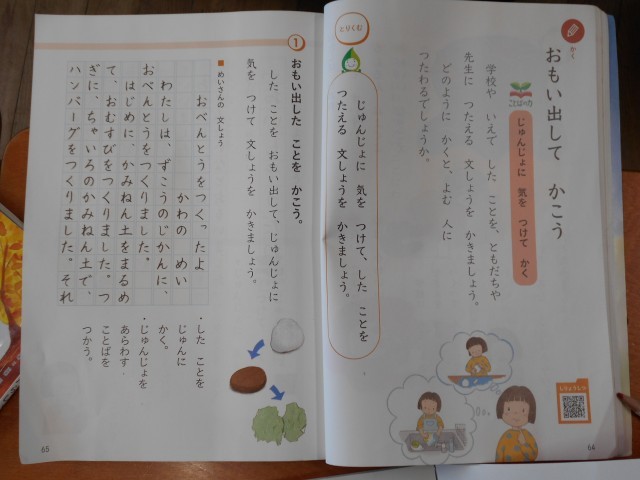 かく
おもい出して かこう
ことばの力
じゅんじょに 気を つけて かく
学校や いえで した ことを、ともだちや
先生に つたえる 文しょうを かきましょう。
どのように かくと、よむ 人に
つたわるでしょうか。
とりくむ
じゅんじょに 気を つけて、した ことを
つたえる 文しょうを かきましょう。
64
1
おもい出した ことを かこう。
した ことを おもい出して、じゅんじょに
気を つけて 文しょうを かきましょう。
■めいさんの 文しょう
おべんとうをつくったよ
かわの めい
わたしは、ずこうのじかんに、
おべんとうをつくりました。
はじめに、かみねん土をまるめ
て、おむすびをつくりました。つ
ぎに、ちゃいろのかみねん土で、
ハンバーグをつくりました。それ
・した ことを
じゅんに
かく。
・じゅんじょを
あらわす
ことばを
つかう。
65